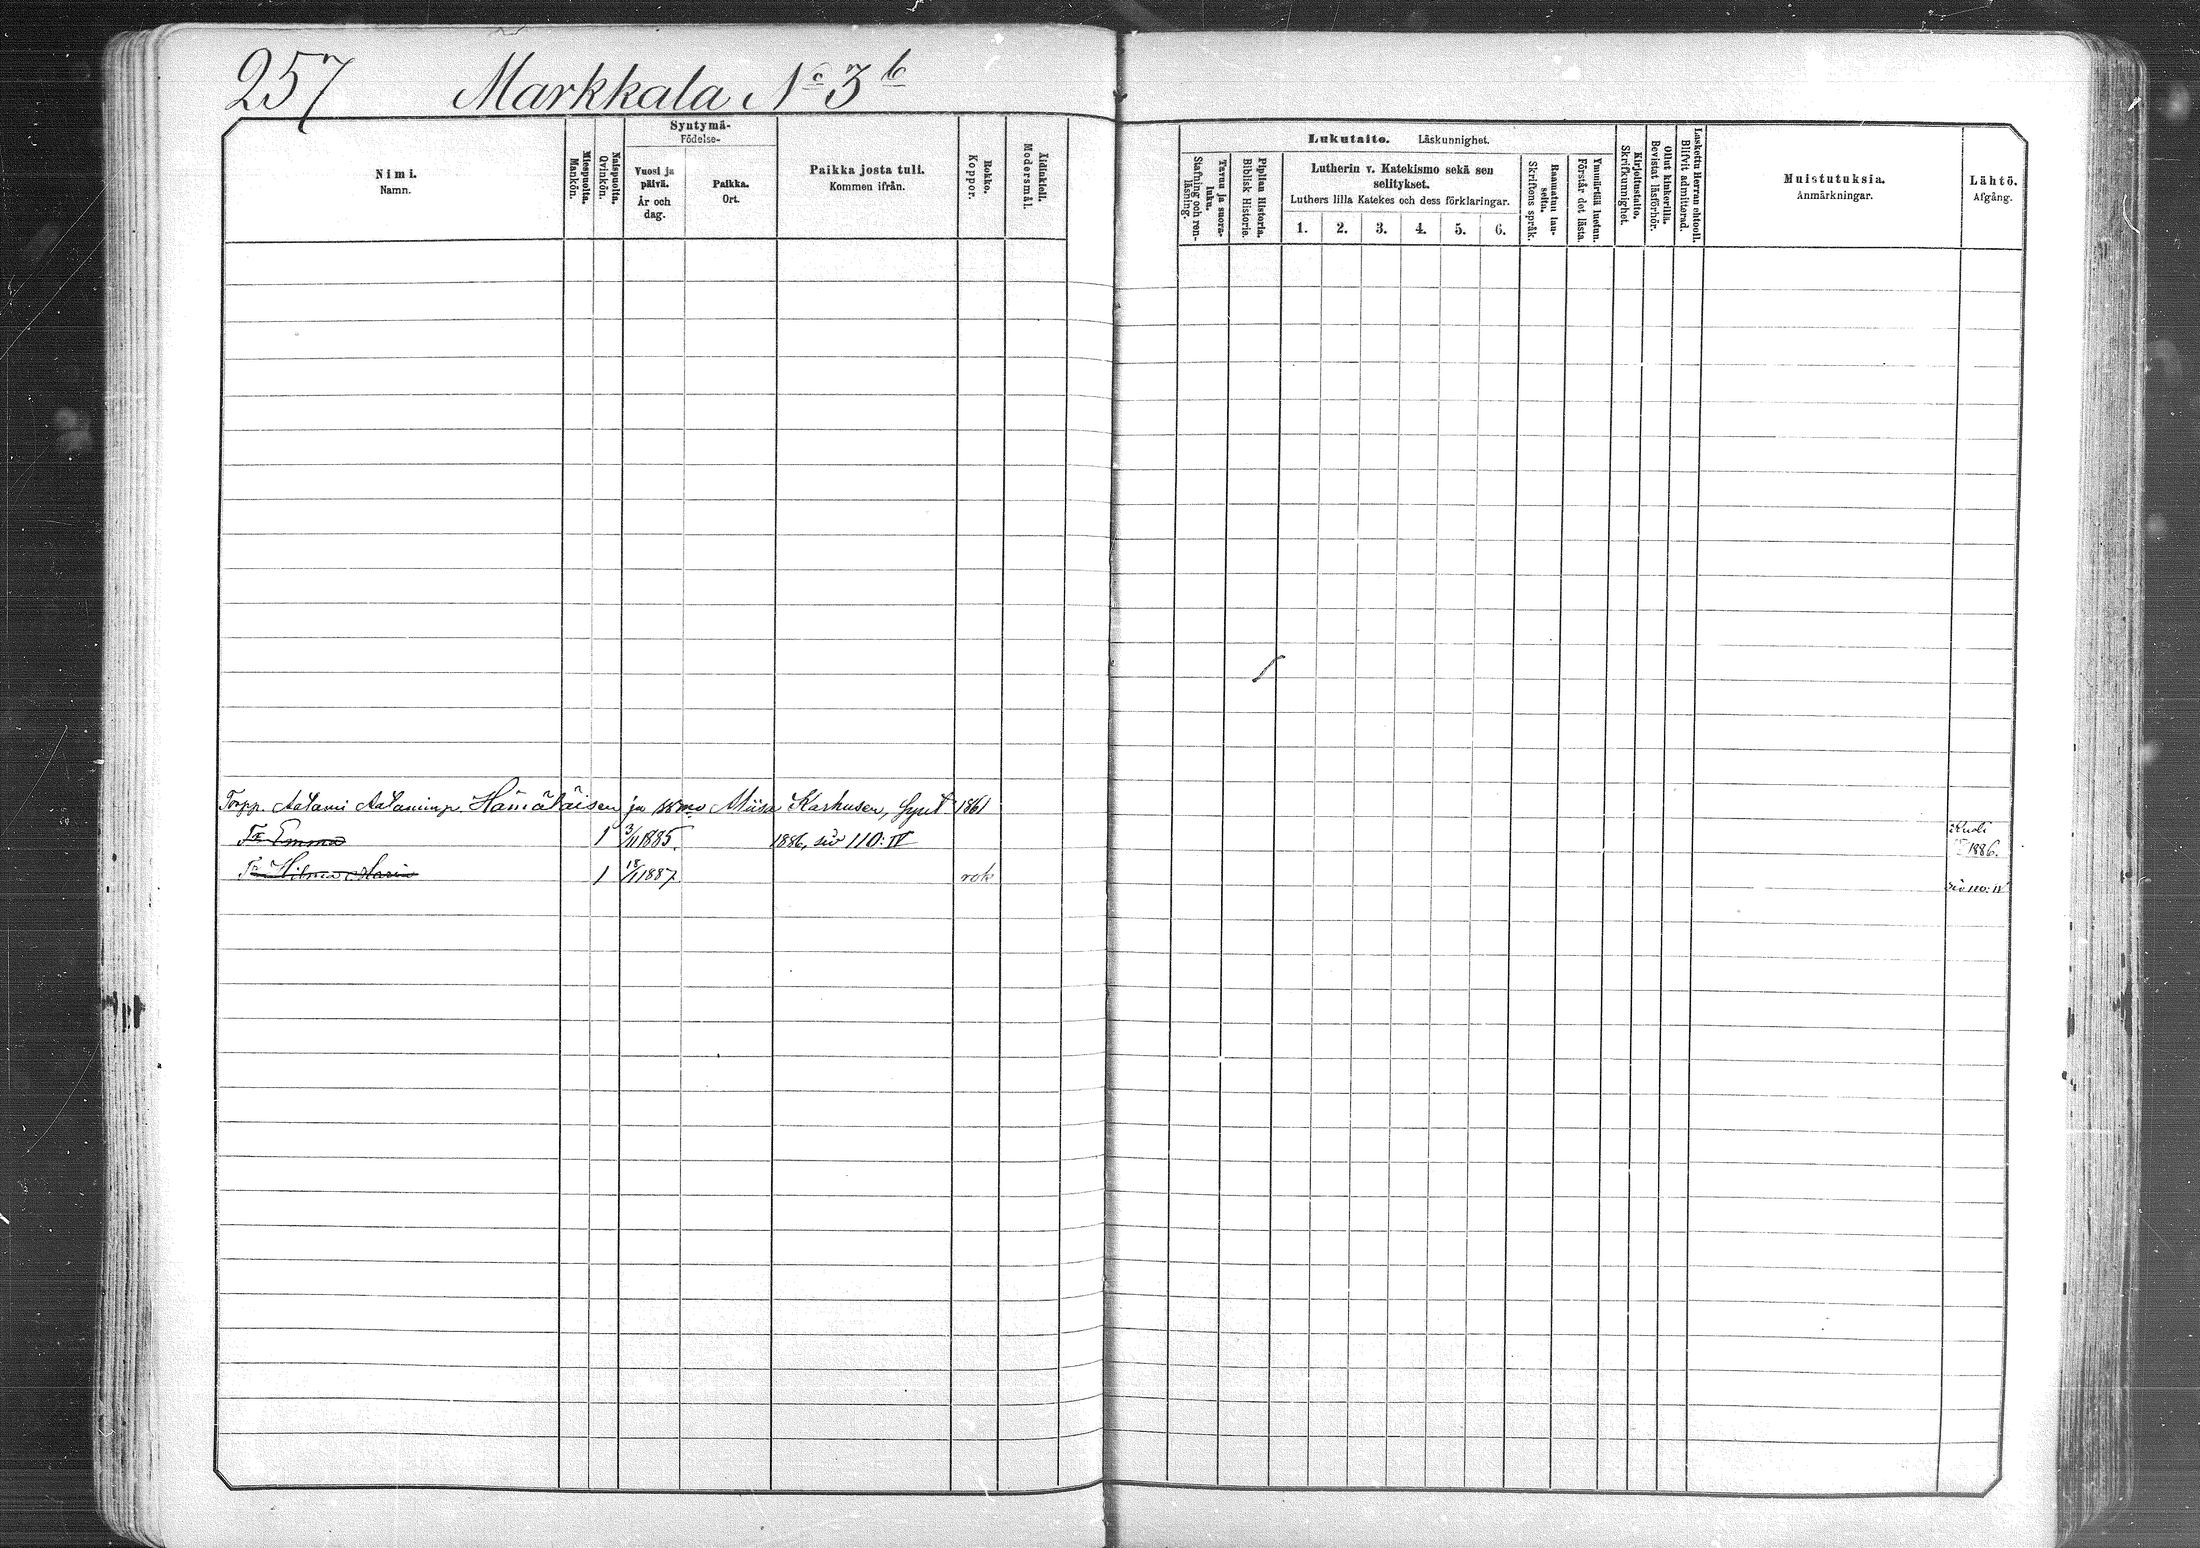 257 Markkala No 3 b
Nimi.
Namn.
Miespuolia.
Mankön.
Naispuolia.
Qvinkön.
Syntymä-
Födelse-
Vuosi ja
päivä.
År och
dag.
Paikka.
Ort.
Paikka josta tuli.
Kommen ifrån.
Rokko.
Koppor.
Äidinkieli.
Modersmål.
Lukutaito. Läskunnighet.
Tavuu ja suora-
luku.
Stafning och ren-
läsning.
Piplian Historia.
Biblisk Historie.
Lutherin v. Katekismo sekä sen
selitykset.
Luthers lilla Katekes och dess förklaringar.
1. 2. 3. 4. 5. 6.
Raamatun lau-
seita.
Skriftens språk.
Ymmärtää luetun.
Förstår det lästa.
Kirjoitustaito.
Skrifkunnighet.
Ollut kinkerillä.
Bevistat läsförhör.
Laskettu Herran ehtooll.
Blifvit admitterad.
Muistutuksia.
Anmärkningar.
Lähtö.
Afgång.
Torpp. Aatami Aataminp. Hämäläisen ja vaimo Miisa Karhusen, Synt. 1861
Tr Emma 1 3/11 1885. 1886, siv 110: IV Kuoli 1886.
Tr Hilma Maria 1 18/11 1887. rok siv 110: IV